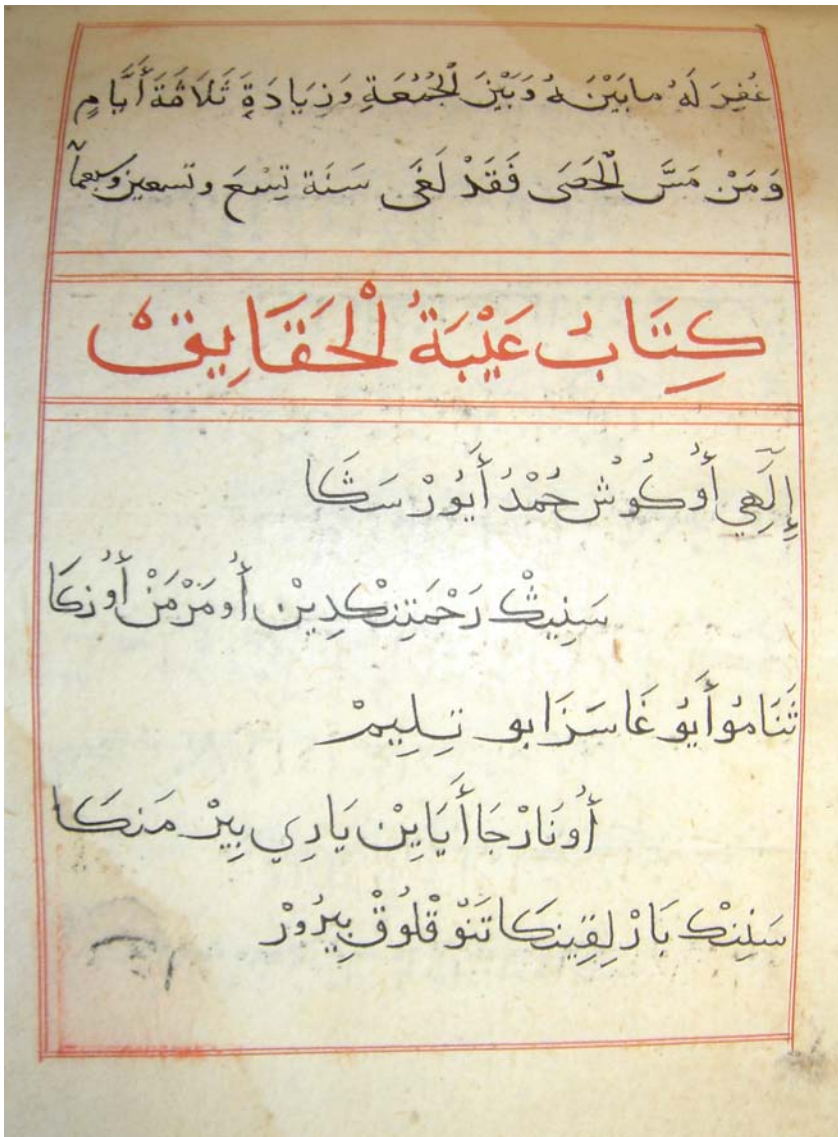 غُفِرَ لَهُ مابَيْنَهُ وَبَيْنَ الْجُمُعَةِ وَزِيَادَةِ ثَلَاثَةَ أَيَّامٍ
وَمَنْ مَسَّ الْحَصَى فَقَدْ لَغَى سَنَة تِسْعَ وتسعين وسبعمأ
كِتَابُ عَيْبَةُ الْحَقَايِقْ
إِلَٰهِي أُوكُوشْ حُمْدُ أَيُورْ سَنْكَا
سَنِينْكْ رَحْمَتِنْكدِينْ أُومَرْمَنْ أُونكَا
ثَنَامُو أَيُو غَا سَزَا بو تِلِيمْ
أُونَارْجَا أَيَايِنْ يَارِي بِيرْ مَنكَا
سَنِنْكْ بَارْ لِقِينكَا تَنُوقْلُوقْ بِيرُورْ